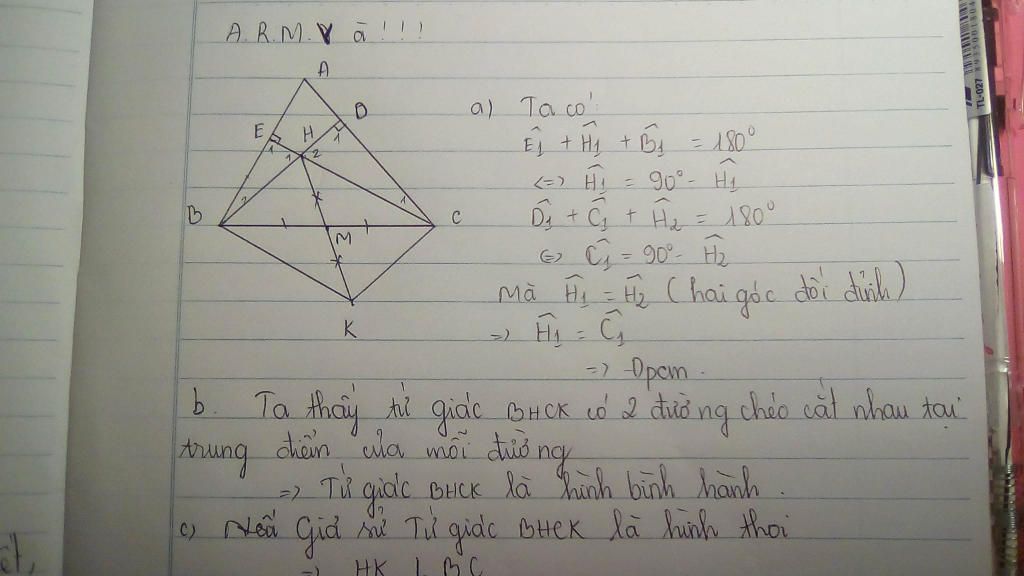 A.R.M.Y à!!!
A
D
E
H
1
1
1
2
B
1
1
C
M
K
a) Ta có:
Ê1 + Ĥ1 + B̂1 = 180°
<=> Ĥ1 = 90° - Ĥ1
D̂1 + Ĉ1 + Ĥ2 = 180°
<=> Ĉ1 = 90° - Ĥ2
Mà Ĥ1 = Ĥ2 (hai góc đối đỉnh)
=> Ĥ1 = Ĉ1
=> Đpcm.
b. Ta thấy tứ giác BHCK có 2 đường chéo cắt nhau tại
trung điểm của mỗi đường
=> Tứ giác BHCK là hình bình hành.
c) Giả sử Tứ giác BHCK là hình thoi
=> HK ⊥ BC
TL-027